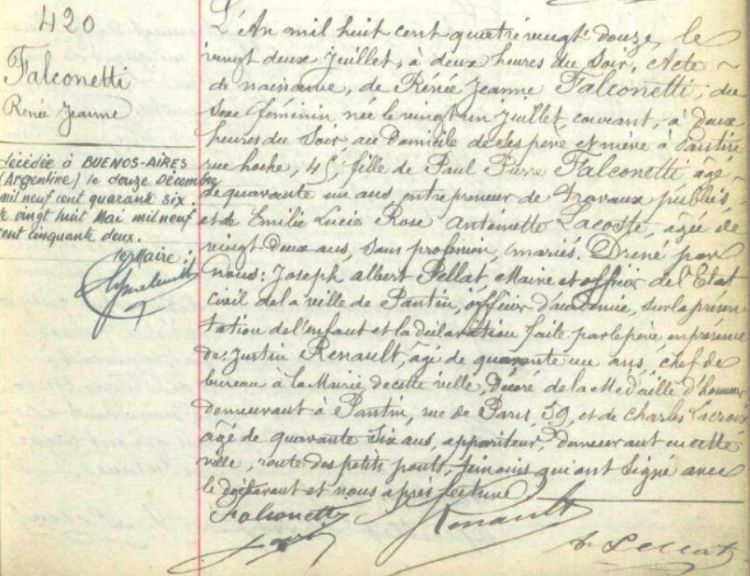 420
Falconetti
Renée Jeanne
décédée à BUENOS-AIRES
(Argentine) le douze Décembre
mil neuf cent quarante six.
le vingt huit Mai mil neuf
cent cinquante deux.
Le Maire :
L'An mil huit cent quatre vingt douze, le
vingt deux Juillet, à deux heures du Soir, Acte
de naissance, de Renée Jeanne Falconetti, du
Sexe féminin née le vingt un Juillet courant, à deux
heures du Soir, au Domicile de ses père et mère à Pantin
rue hoche, 45, fille de Paul Pierre Falconetti âgé
de quarante un ans, entrepreneur de travaux publics
et de Emilie Lucie Rose Antoinette Lacoste, âgée de
vingt deux ans, sans profession, mariés. Dressé par
nous: Joseph Albert Pellat, Maire et officier de l'Etat
Civil de la ville de Pantin, officier d'académie, sur la présen
tation de l'enfant et la déclaration faite par le père en présence
de: Justin Renault, âgé de quarante un ans, chef de
bureau à la Mairie de cette ville, Décoré de la Médaille d'honneur
demeurant à Pantin, rue de Paris, 39, et de Charles Lacroix
âgé de quarante six ans, appariteur, demeurant en cette
ville, route des petits ponts, témoins qui ont Signé avec
le déclarant et nous après lecture
Falconetti
Renault
Pellat